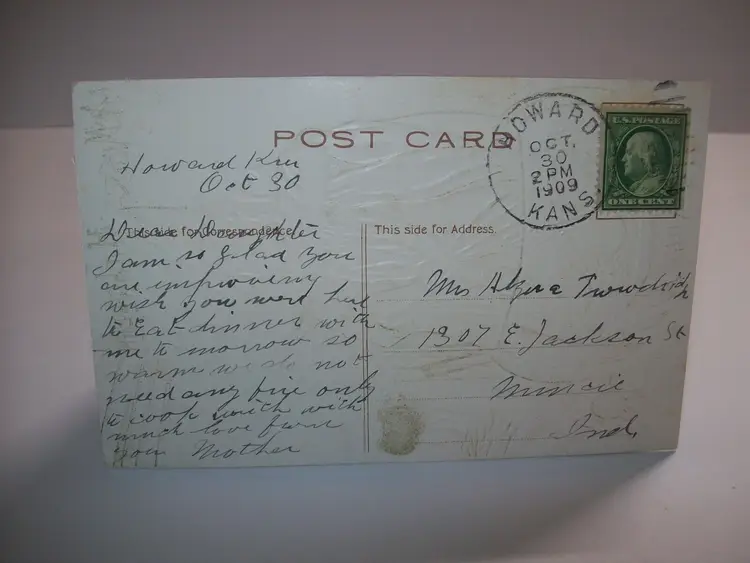 POST CARD
HOWARD
OCT.
30
2 PM
1909
KANS
U.S. POSTAGE
ONE CENT
Howard
Oct 30
This side for Correspondence.
Dear Daughter
I am so glad you
are improving
wish you were here
to Eat dinner with
me to morrow so
warm we do not
need any fire only
to cook with with
much love from
your Mother
This side for Address.
Mrs Trowbridge
1307 E. Jackson St
Muncie
Ind.